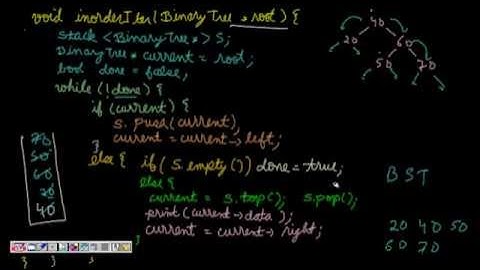 void inorderIter(BinaryTree *root) {
stack <BinaryTree*> S;
BinaryTree* current = root;
bool done = false;
while (!done) {
if (current) {
S.push(current);
current = current→left;
}
else { if (S.empty()) done = true;
else {
current = S.top(); S.pop();
print(current→data);
current = current→right;
}
} } }
70
50
60
20
40
40
20 60
50 70
BST
20 40 50
60 70